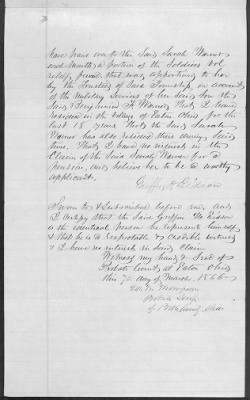 have paid over to the said Sarah Warner
and family a portion of the Soldiers Vol
relief fund that was apportioned to her
by the Trustees of said Township, on account
of the Military Services of her said Son the
said Benjamin F. Warner. That I have
resided in the Village of Eaton Ohio for the
last 18 years. That the said Sarah
Warner has also resided there during said
time. That I have no interest in the
Claim of the said Sarah Warner for a
pension, and believe her to be a worthy
applicant.
Griffin H. Eidson
Sworn to & Subscribed before me, and
I certify that the said Griffin H. Eidson
is the identical person he represents himself
& that he is a respectable & credible witness
& I have no interest in said Claim
Witness my hand & Seal of
Probate Court, at Eaton Ohio
this 7th day of March 1866
Thompson
Probate Judge
of Preble County, Ohio